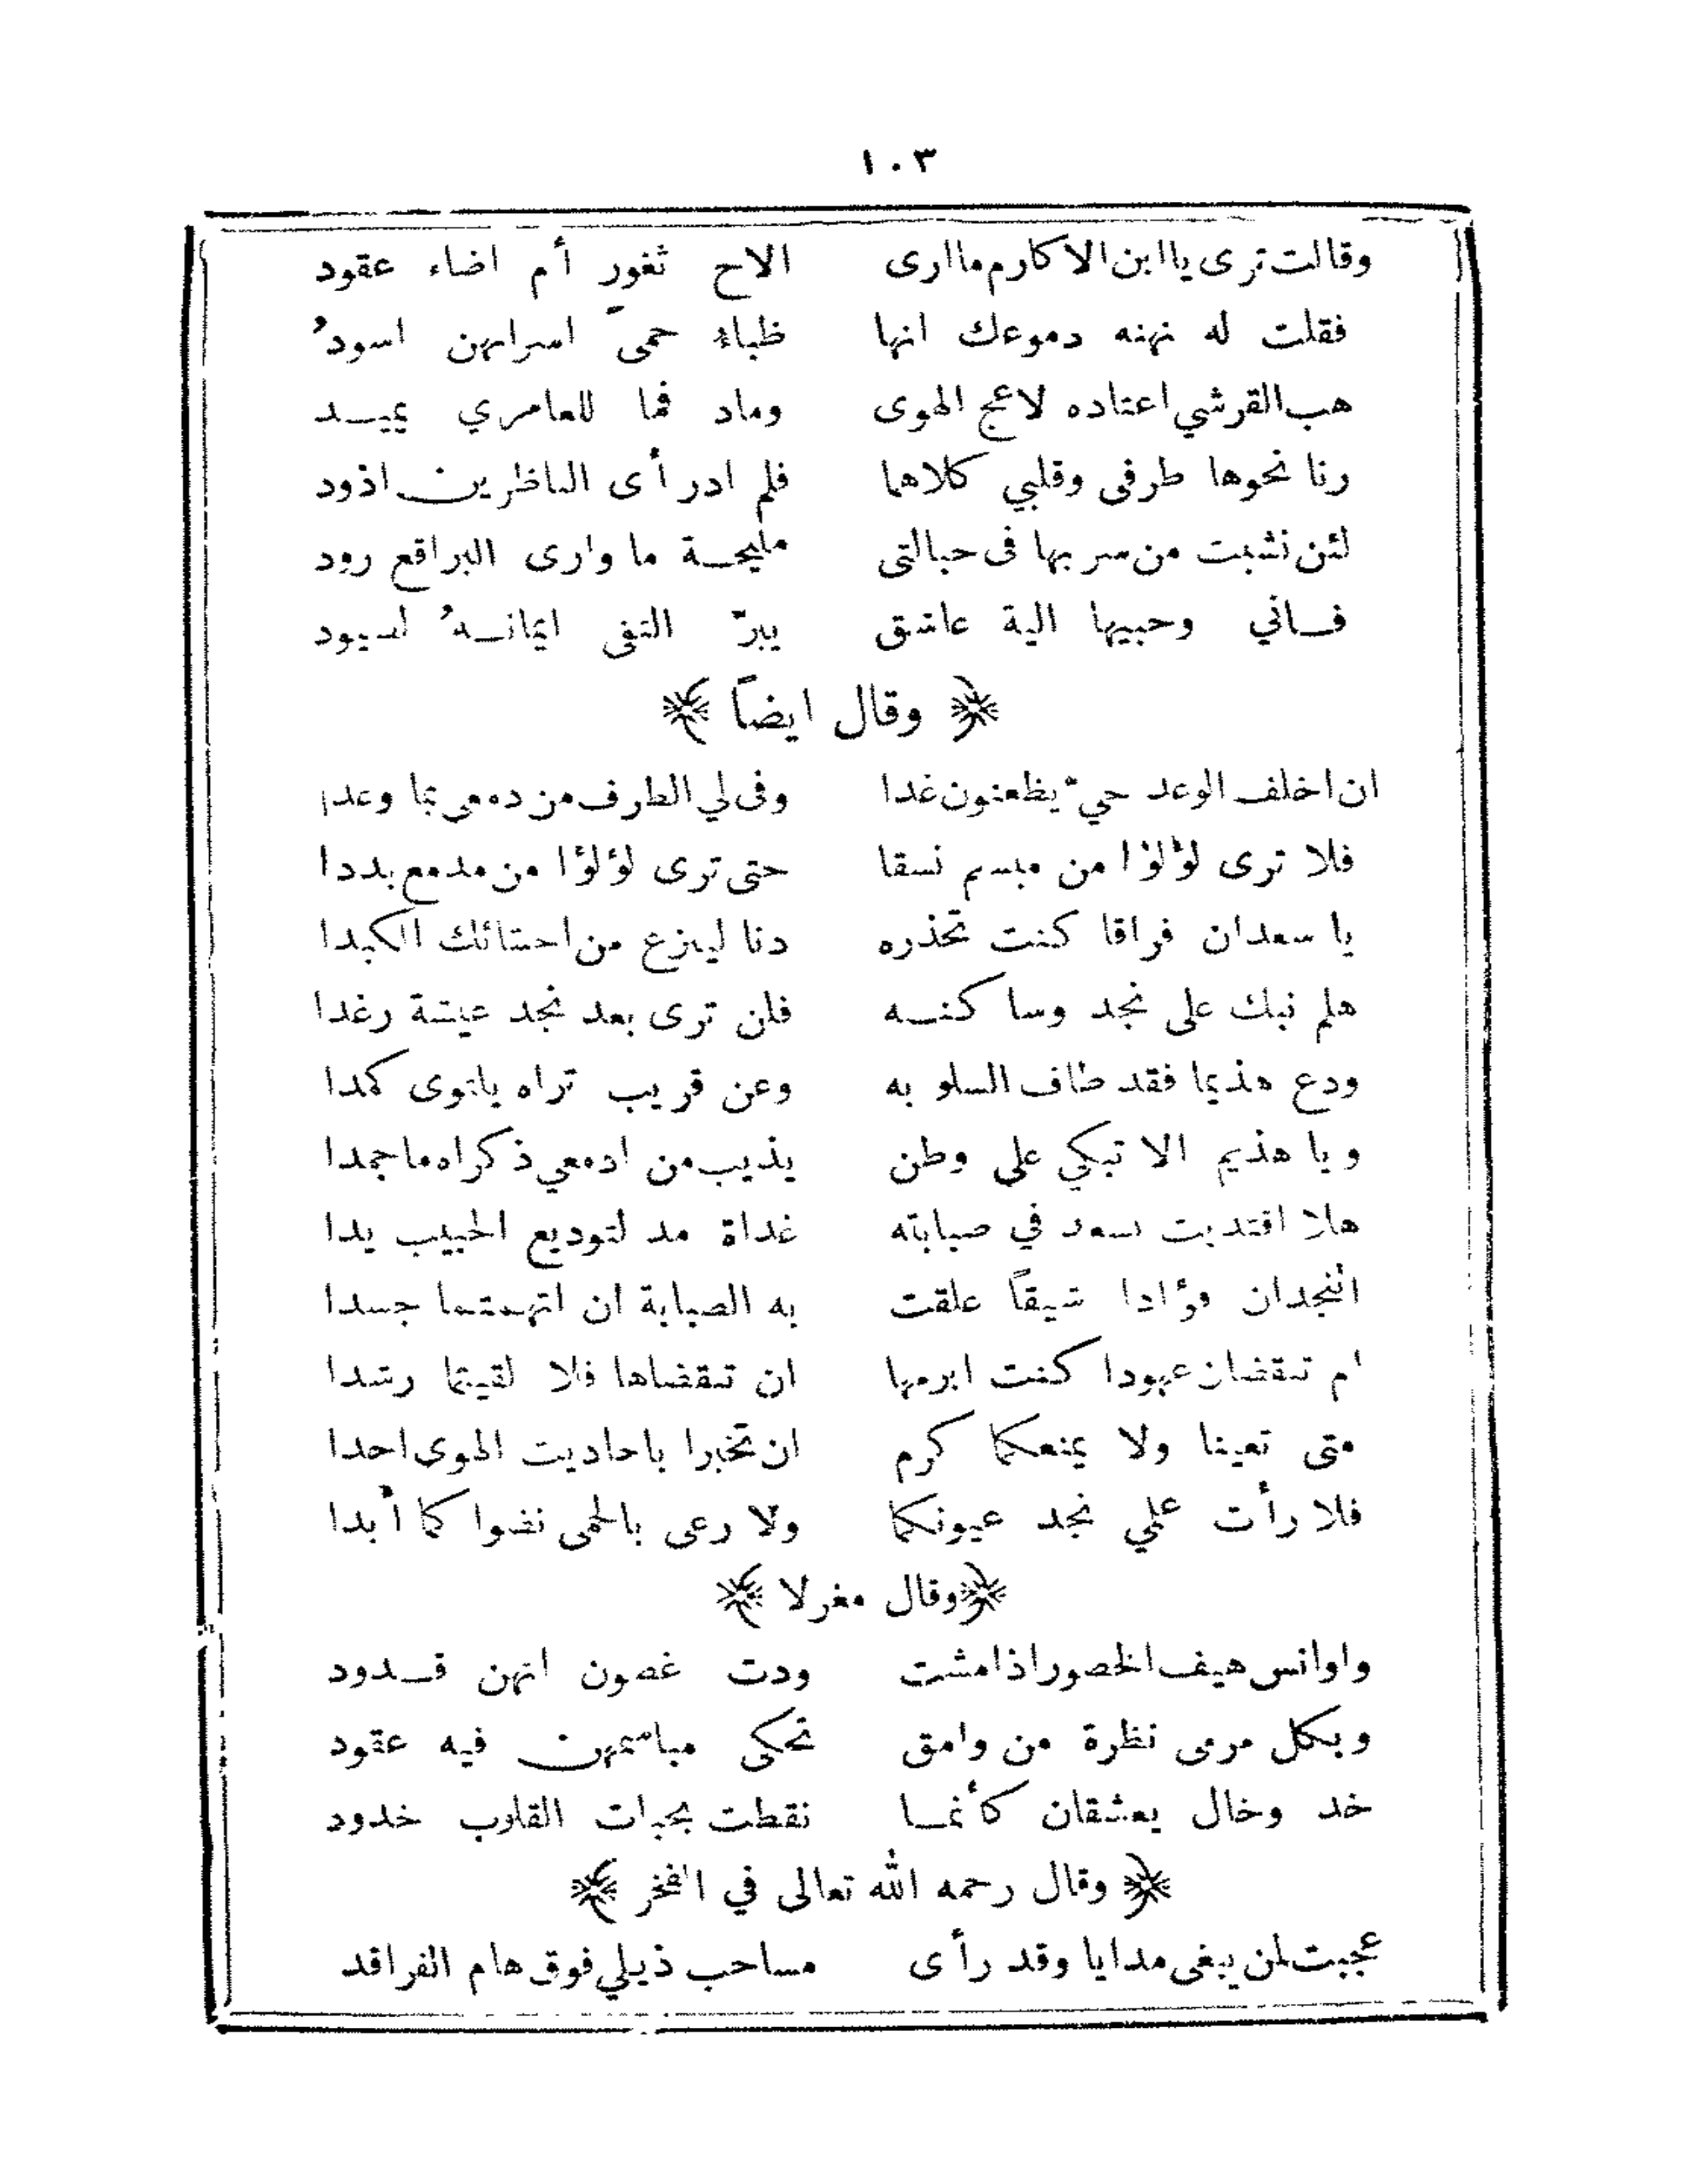 ١٠٣
وقالت ترى يا ابن الاكارم ما ارى الاح ثغور أم اضاء عقود
فقلت له نهنه دموعك انها ظباءُ حمىً اسرابهن اسودُ
هب القرشي اعتاده لاعج الهوى وماد فما للعامري يميد
رنا نحوها طرفى وقلبي كلاهما فلم ادر أى الناظرين اذود
لئن نشبت من سر بها فى حبالتى مليحة ما وارى البراقع رود
فاني وحبيها الية عاشق يبرّ التقى ايمانهُ لصيود
﴿ وقال ايضاً ﴾
ان اخلف الوعد حيّ يظعنون غدا وفى لي الطرف من دمعى بما وعدا
فلا ترى لؤلؤا من مبسم نسقا حتى ترى لؤلؤا من مدمع بددا
يا سعد ان فراقا كنت تحذره دنا لينزع من احشائك الكبدا
هلم نبك على نجد وساكنه فلن ترى بعد نجد عيشة رغدا
ودع هذيما فقد طاف السلو به وعن قريب تراه بالنوى كمدا
ويا هذيم الا تبكي على وطن يذيب من ادمعي ذكراه ما جمدا
هلا اقتديت بسعد في صبابته غداة مد لتوديع الحبيب يدا
اتنجدان فؤادا شيقاً علقت به الصبابة ان اتهمتما جسدا
ام تنقضان عهودا كنت ابرمها ان تنقضاها فلا لقيتما رشدا
متى تعينا ولا يمنعكما كرم ان تخبرا باحاديث الهوى احدا
فلا رأت علمي نجد عيونكما ولا رعى بالحمى نضوا كما أبدا
﴿ وقال مغزلا ﴾
واوانس هيف الخصور اذا مشت ودت غصون انهن قدود
وبكل مرمى نظرة من وامق تحكى مباسمهن فيه عقود
خد وخال يعشقان كأنما نقطت بحبات القلوب خدود
﴿ وقال رحمه الله تعالى في الفخر ﴾
عجبت لمن يبغى مدايا وقد رأى مساحب ذيلي فوق هام الفراقد